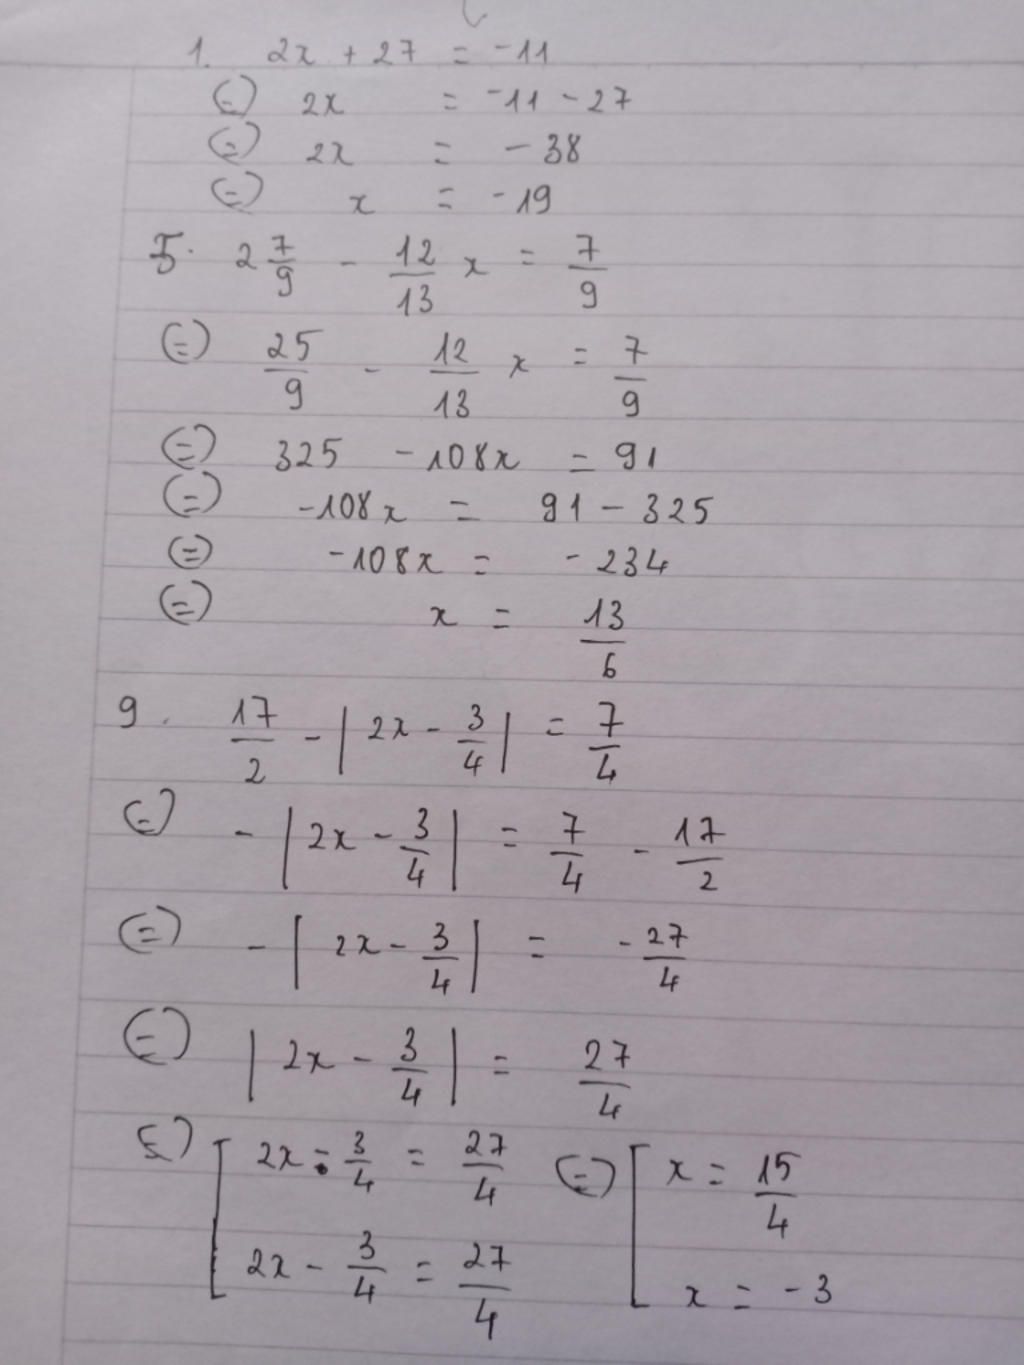 1. 2x + 27 = -11
(=) 2x = -11 - 27
(=) 2x = -38
(=) x = -19
5. 2 7/9 - 12/13 x = 7/9
(=) 25/9 - 12/13 x = 7/9
(=) 325 - 108x = 91
(=) -108x = 91 - 325
(=) -108x = -234
(=) x = 13/6
9. 17/2 - |2x - 3/4| = 7/4
(=) -|2x - 3/4| = 7/4 - 17/2
(=) -|2x - 3/4| = -27/4
(=) |2x - 3/4| = 27/4
(=) [ 2x - 3/4 = 27/4 (=) [ x = 15/4
2x - 3/4 = 27/4 x = -3